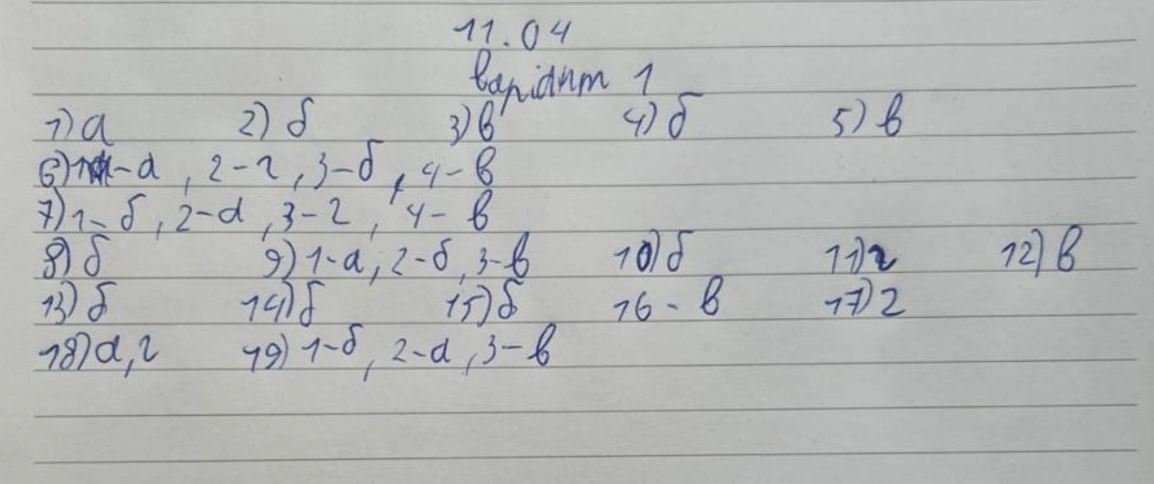 11.04
Варіант 1
1) а 2) б 3) в 4) б 5) в
6) 1-а, 2-г, 3-б, 4-в
7) 1-б, 2-а, 3-г, 4-в
8) б 9) 1-а, 2-б, 3-в 10) б 11) г 12) в
13) б 14) б 15) б 16 - в 17) г
18) а, г 19) 1-б, 2-а, 3-в